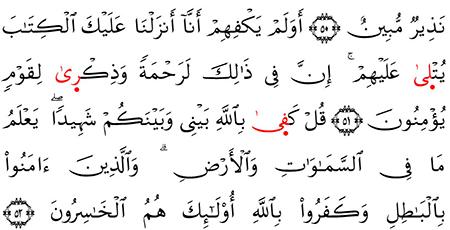 نَذِيرٌ مُّبِينٌ ۝٥٠ أَوَلَمْ يَكْفِهِمْ أَنَّآ أَنزَلْنَا عَلَيْكَ الْكِتَـٰبَ
يُتْلِىٰ عَلَيْهِمْ ۚ إِنَّ فِى ذَٰلِكَ لَرَحْمَةً وَذِكْرِىٰ لِقَوْمٍ
يُؤْمِنُونَ ۝٥١ قُلْ كَفِىٰ بِاللَّهِ بَيْنِى وَبَيْنَكُمْ شَهِيدًا ۖ يَعْلَمُ
مَا فِى السَّمَـٰوَٰتِ وَالْأَرْضِ ۗ وَالَّذِينَ ءَامَنُوا۟
بِالْبَـٰطِلِ وَكَفَرُوا۟ بِاللَّهِ أُو۟لَـٰٓئِكَ هُمُ الْخَـٰسِرُونَ ۝٥٢